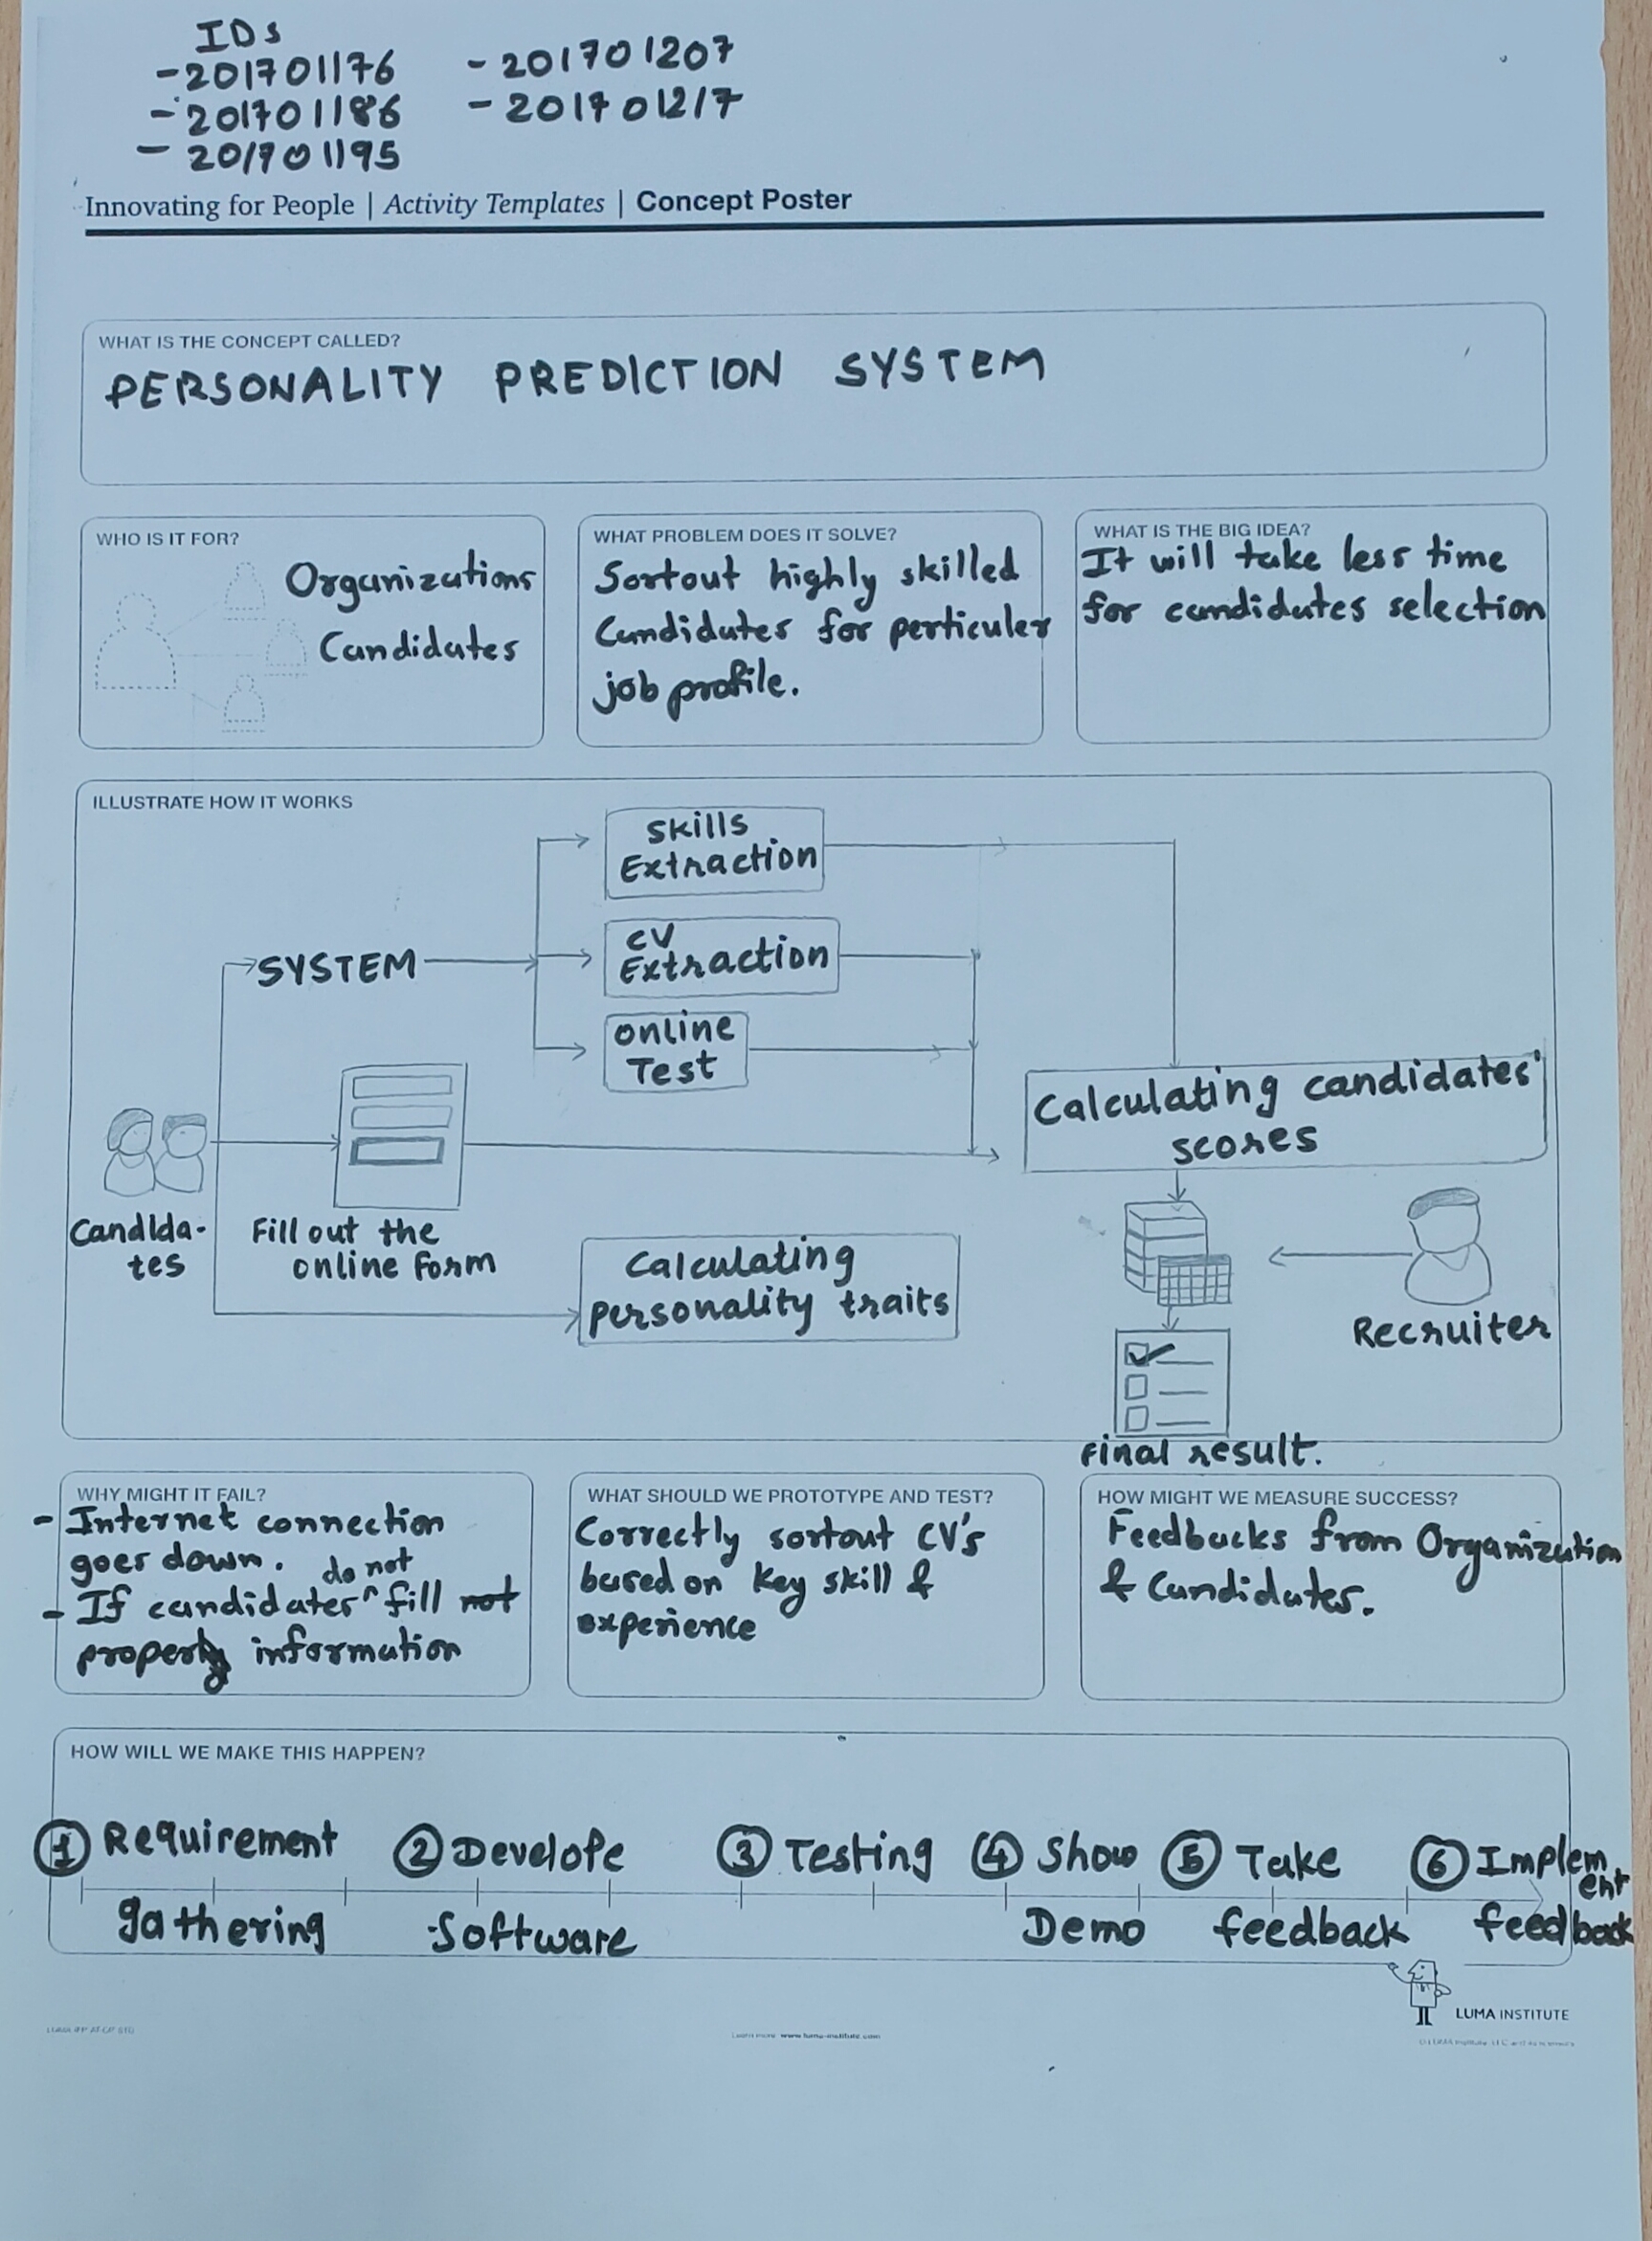 IDs
-201701176
-201701186
- 201701195
- 201701207
- 201701217
Innovating for People | Activity Templates | Concept Poster
WHAT IS THE CONCEPT CALLED?
PERSONALITY PREDICTION SYSTEM
WHO IS IT FOR?
Organizations
Candidates
WHAT PROBLEM DOES IT SOLVE?
Sortout highly skilled
Candidates for perticuler
job profile.
WHAT IS THE BIG IDEA?
It will take less time
for candidates selection
ILLUSTRATE HOW IT WORKS
Skills
Extraction
SYSTEM
CV
Extraction
online
Test
Calculating candidates'
scores
Candida-
tes
Fill out the
online form
Calculating
personality traits
Recruiter
Final result.
WHY MIGHT IT FAIL?
- Internet connection
goes down.
do not
- If candidates ^ fill not
properly information
WHAT SHOULD WE PROTOTYPE AND TEST?
Correctly sortout CV's
based on key skill &
experience
HOW MIGHT WE MEASURE SUCCESS?
Feedbacks from Organization
& Candidates.
HOW WILL WE MAKE THIS HAPPEN?
1 Requirement
gathering
2 Develope
Software
3 Testing
4 Show
Demo
5 Take
feedback
6 Implem
ent
feedback
LUMA INSTITUTE
Learn more www.luma-institute.com